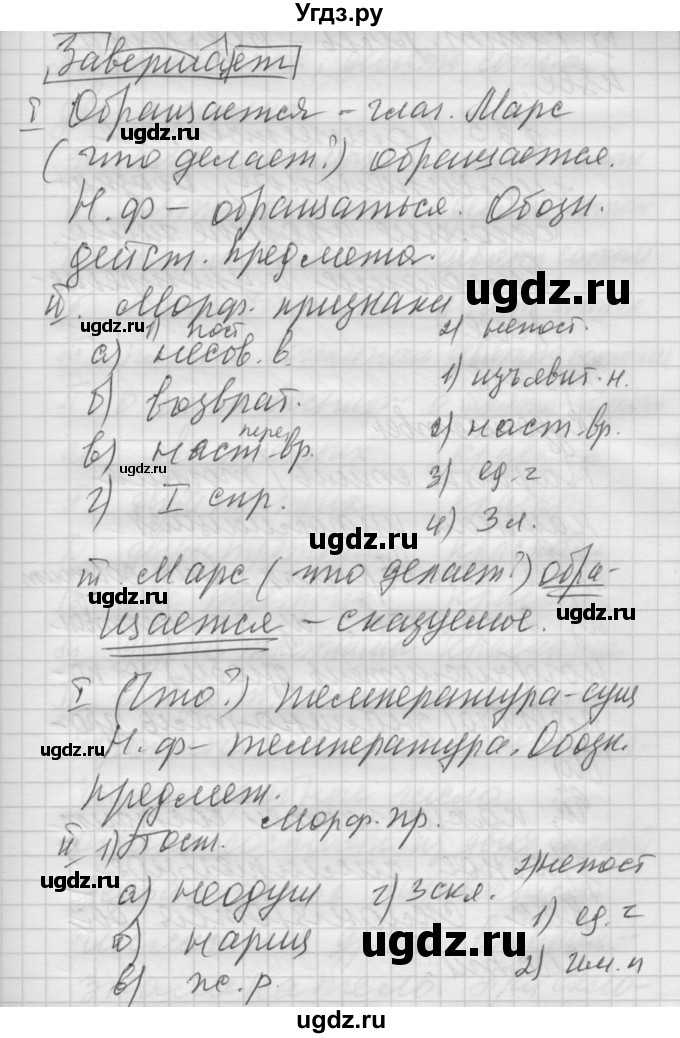 Угдз.ру
Завершает
I Обращается – глаг. Марс
ugdz.ru ugdz.ru
(что делает?) обращается.
Н.ф – обращаться. Обозн.
ugdz.ru
дейст. предмета.
II. Морф. признаки
ugdz.ru
ugdz.ru 1) пост 2) непост.
а) несов. в.
1) изъявит. н.
б) возврат.
2) наст. вр.
в) наст. вр.
ugdz.ru
3) ед. ч
г) I спр.
4) 3 л.
ugdz.ru
III. Марс (что делает?) обра-
ugdz.ru
щается – сказуемое.
I (Что?) температура – сущ
ugdz.ru
Н.ф – температура. Обозн.
ugdz.ru
предмет.
Морф. пр.
II 1) Пост.
2) непост
ugdz.ru
а) неодуш г) 3 скл.
1) ед. ч
б) нариц
ugdz.ru
2) Им. п
в) ж. р.
ugdz.ru
ugdz.ru